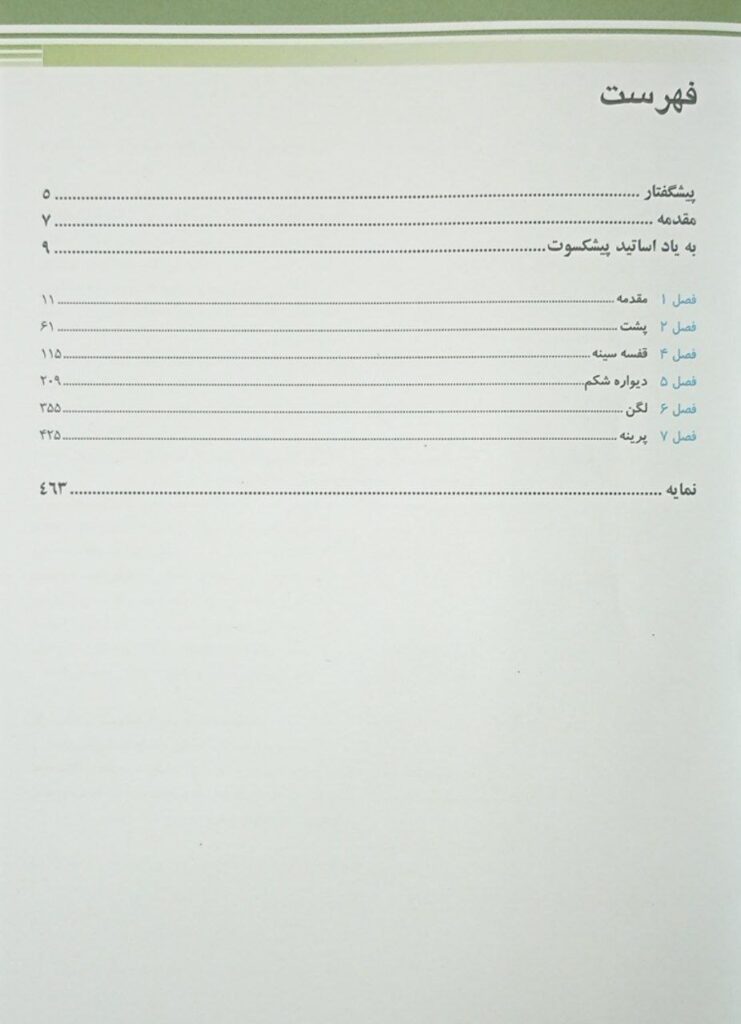 فهرست
پیشگفتار ........ ۵
مقدمه ........ ۷
به یاد اساتید پیشکسوت ........ ۹
فصل ۱ مقدمه ........ ۱۱
فصل ۲ پشت ........ ۶۱
فصل ۴ قفسه سینه ........ ۱۱۵
فصل ۵ دیواره شکم ........ ۲۰۹
فصل ۶ لگن ........ ۳۵۵
فصل ۷ پرینه ........ ۴۲۵
نمایه ........ ٤٦٣